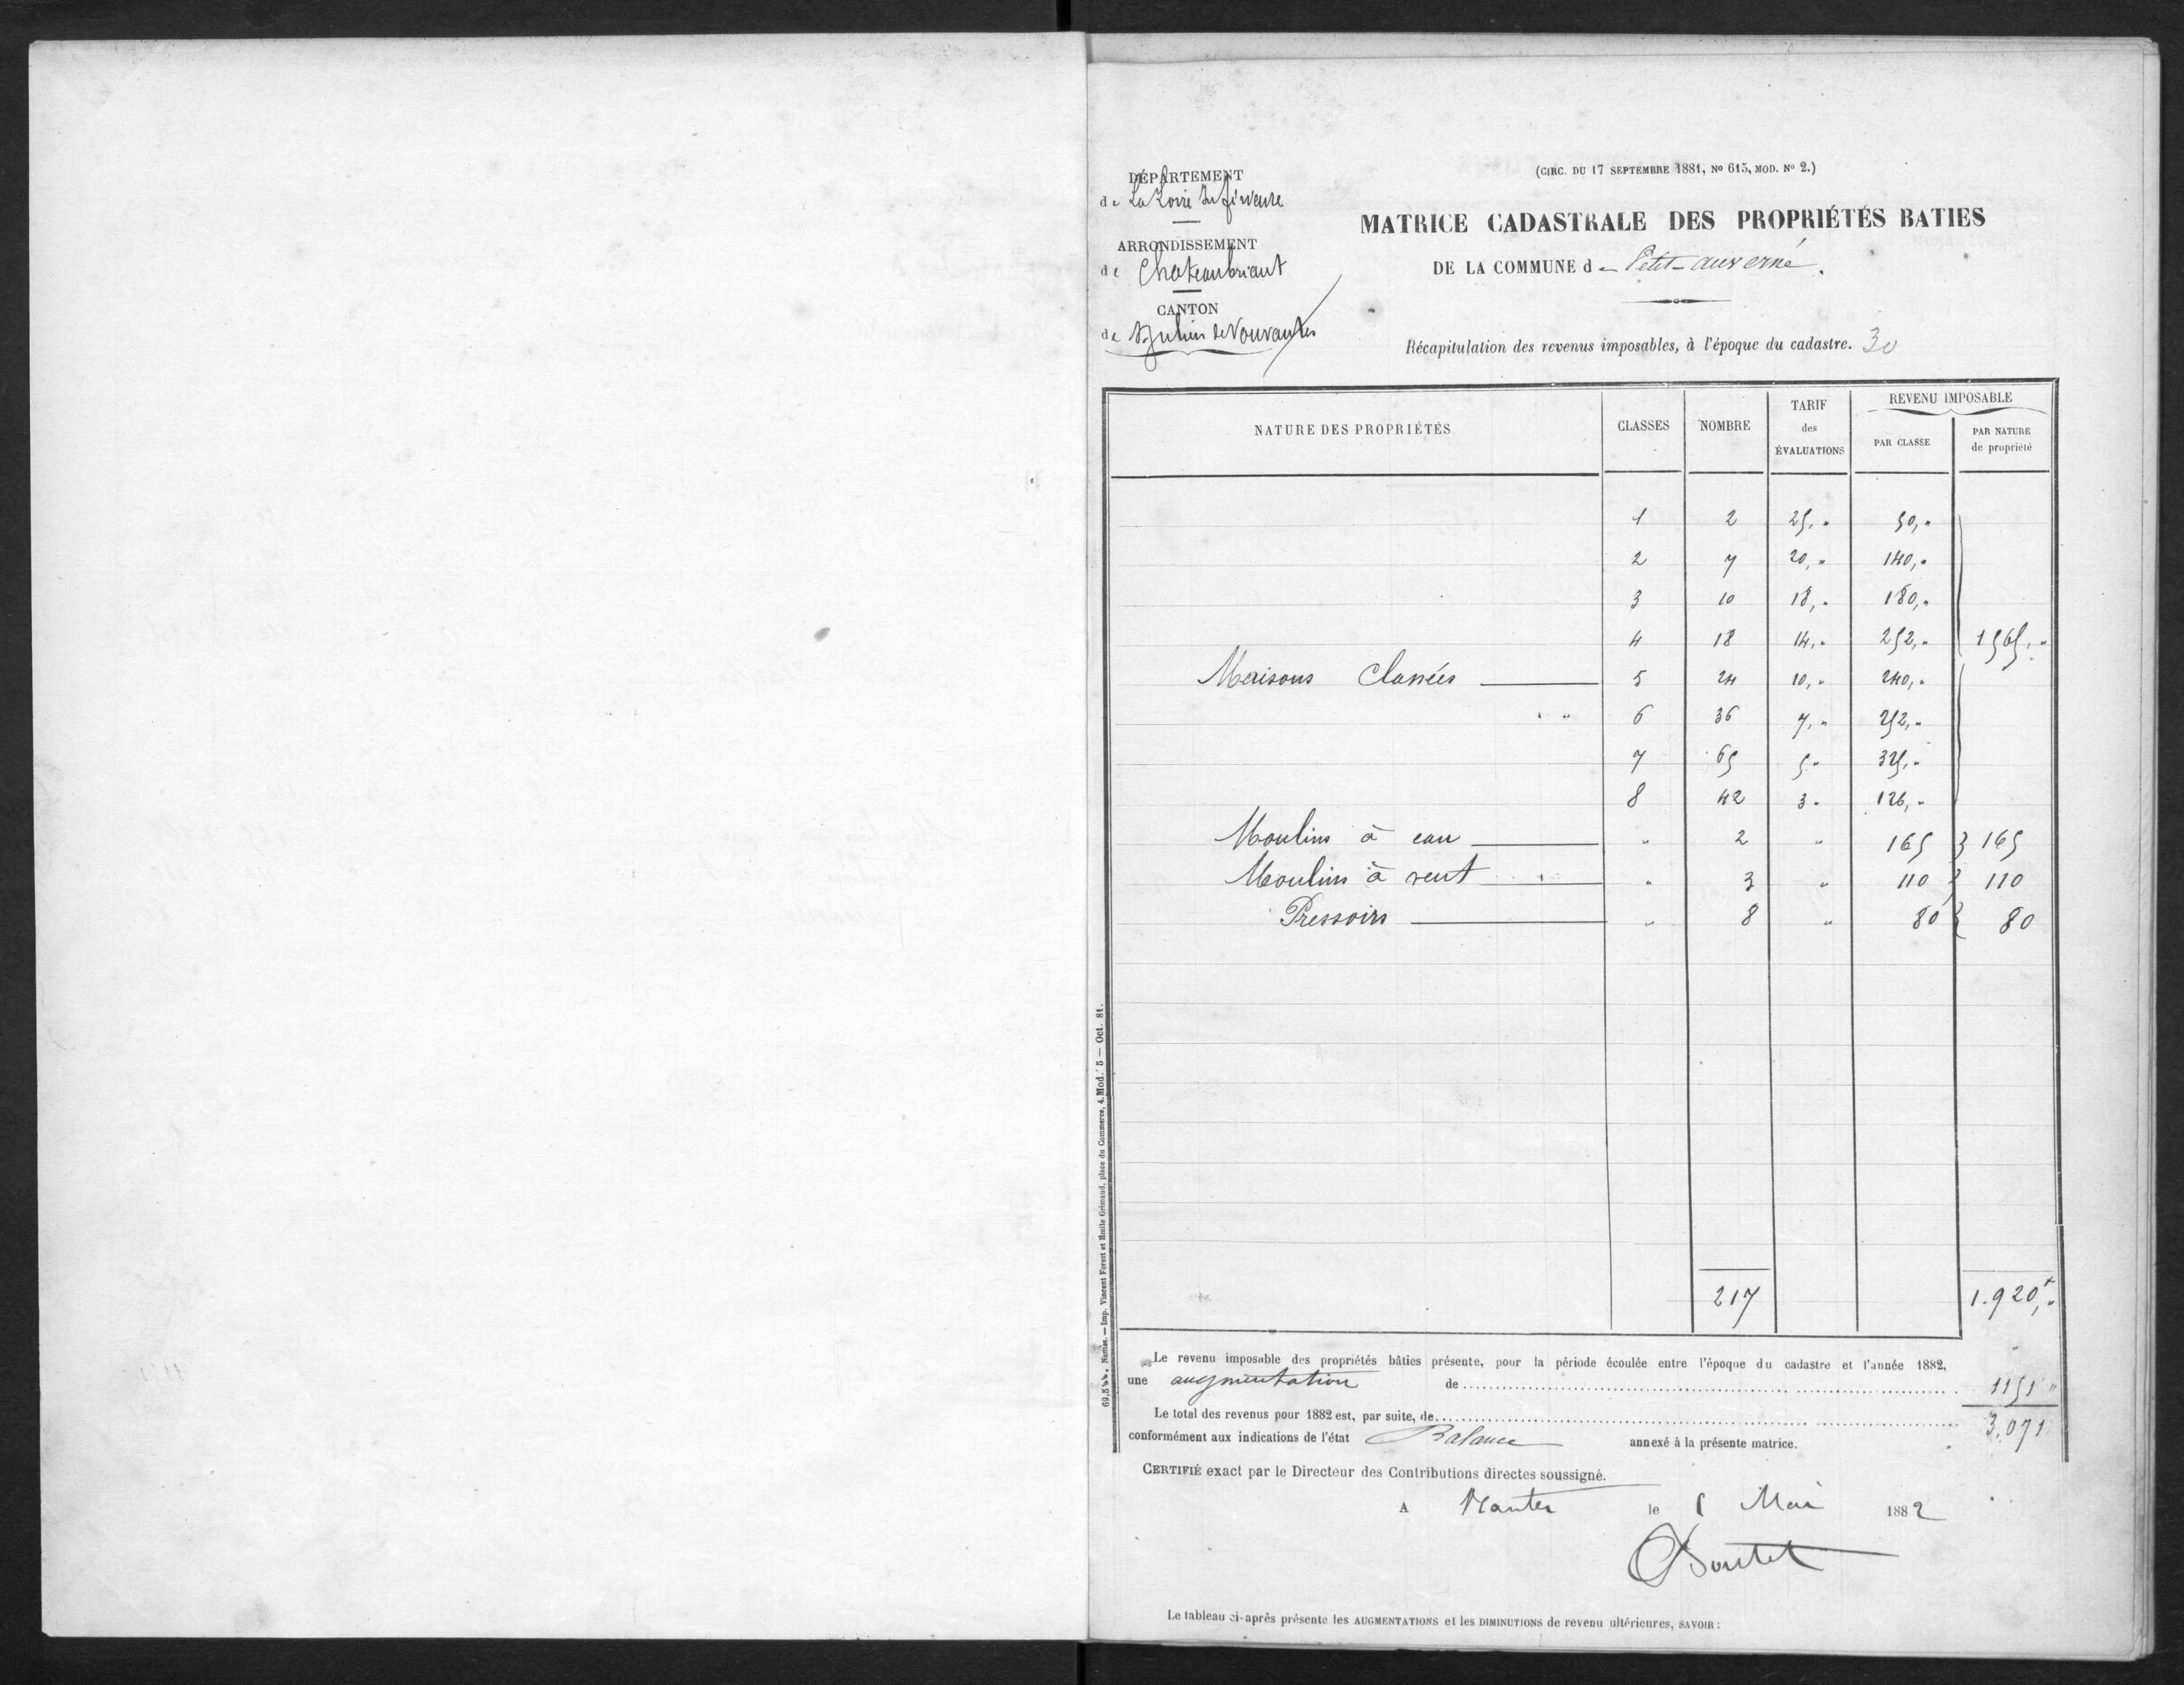 DÉPARTEMENT
de La Loire Inférieure
ARRONDISSEMENT
de Chateaubriant
CANTON
de St Julien de Vouvantes
(CIRC. DU 17 SEPTEMBRE 1881, No 615, MOD. No 2.)
MATRICE CADASTRALE DES PROPRIÉTÉS BATIES
DE LA COMMUNE de Petit-auverné.
Récapitulation des revenus imposables, à l'époque du cadastre. 30
NATURE DES PROPRIÉTÉS CLASSES NOMBRE TARIF des ÉVALUATIONS REVENU IMPOSABLE PAR CLASSE PAR NATURE de propriété
1 2 25," 50,"
2 7 20," 140,"
3 10 18," 180,"
4 18 14," 252," 1565,"
Maisons Classées 5 24 10," 240,"
" 6 36 7," 252,"
7 65 5" 325,"
8 42 3" 126,"
Moulins à eau " 2 " 165 165
Moulins à vent " 3 " 110 110
Pressoirs " 8 " 80 80
217 1.920,"
Le revenu imposable des propriétés bâties présente, pour la période écoulée entre l'époque du cadastre et l'année 1882,
une augmentation de 1151 "
Le total des revenus pour 1882 est, par suite, de 3.071
conformément aux indications de l'état Balance annexé à la présente matrice.
CERTIFIÉ exact par le Directeur des Contributions directes soussigné.
A Nantes le Mai 1882
Le tableau ci-après présente les AUGMENTATIONS et les DIMINUTIONS de revenu ultérieures, SAVOIR :
69,544. Nantes. — Imp. Vincent Forest et Emile Grimaud, place du Commerce, 4. Mod. 5 — Oct. 81.